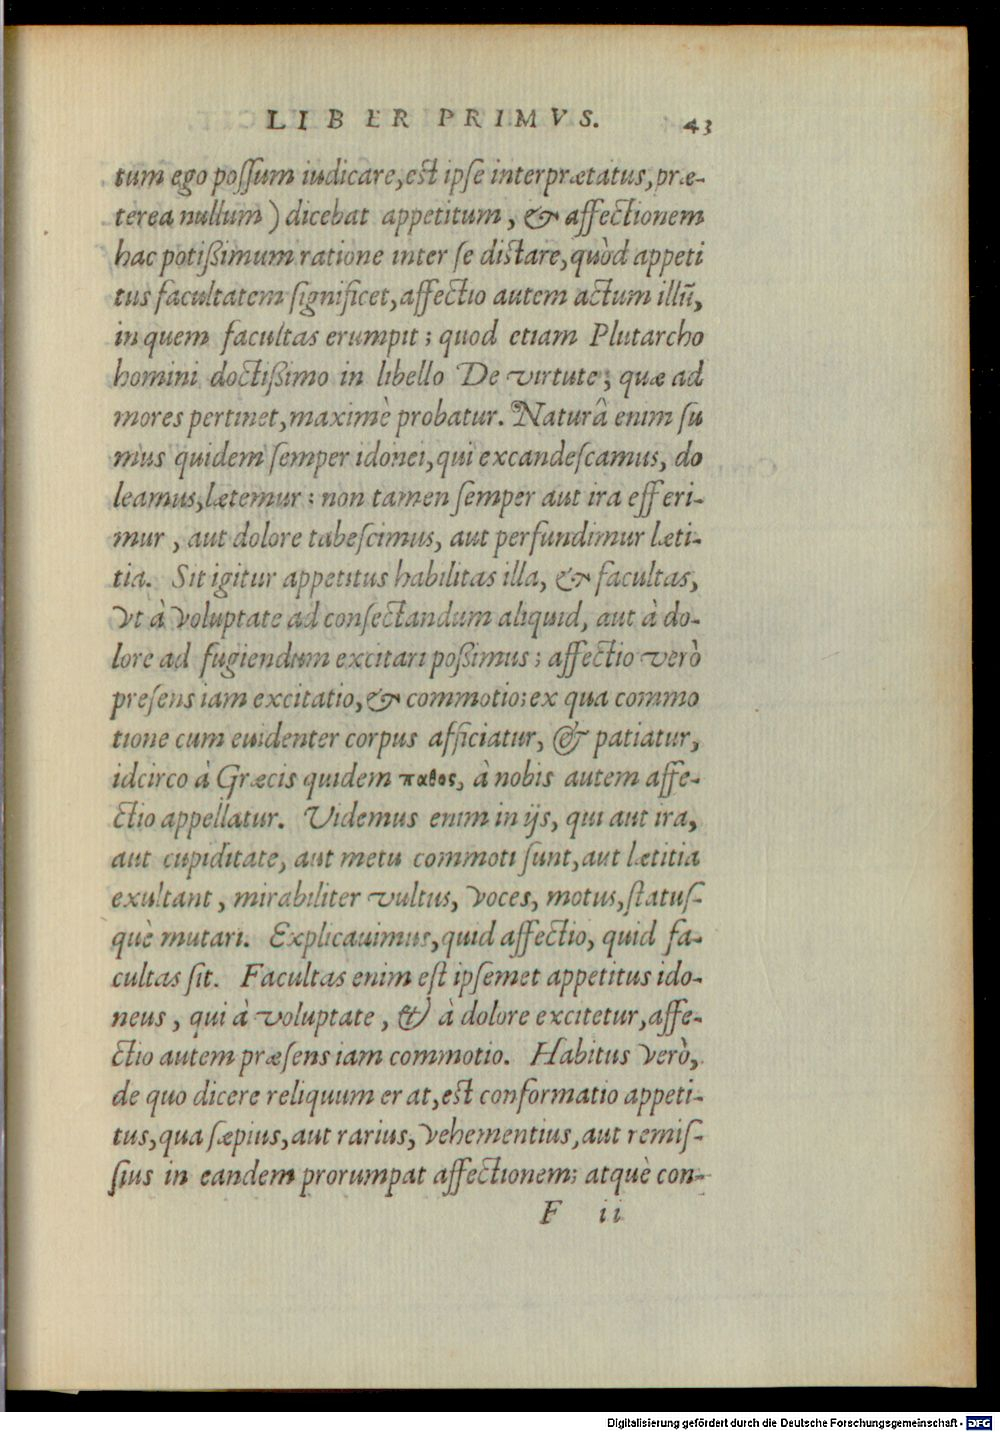 LIBER PRIMVS. 43
tum ego possum iudicare, est ipse interprætatus, præ-
terea nullum ) dicebat appetitum, & affectionem
hac potißimum ratione inter se distare, quòd appeti
tus facultatem significet, affectio autem actum illū,
in quem facultas erumpit; quod etiam Plutarcho
homini doctißimo in libello De virtute; quæ ad
mores pertinet, maximè probatur. Naturâ enim su
mus quidem semper idonei, qui excandescamus, do
leamus, lætemur: non tamen semper aut ira efferi-
mur, aut dolore tabescimus, aut perfundimur læti-
tia. Sit igitur appetitus habilitas illa, & facultas,
vt à voluptate ad consectandum aliquid, aut à do-
lore ad fugiendum excitari poßimus; affectio verò
presens iam excitatio, & commotio; ex qua commo
tione cum euidenter corpus afficiatur, & patiatur,
idcirco à Græcis quidem παθος, à nobis autem affe-
ctio appellatur. Videmus enim in ijs, qui aut ira,
aut cupiditate, aut metu commoti sunt, aut lætitia
exultant, mirabiliter vultus, voces, motus, status-
què mutari. Explicauimus, quid affectio, quid fa-
cultas sit. Facultas enim est ipsemet appetitus ido-
neus, qui à voluptate, & à dolore excitetur, affe-
ctio autem præsens iam commotio. Habitus verò,
de quo dicere reliquum erat, est conformatio appeti-
tus, qua sæpius, aut rarius, vehementius, aut remis-
sius in eandem prorumpat affectionem; atquè con-
F ii
Digitalisierung gefördert durch die Deutsche Forschungsgemeinschaft - DFG